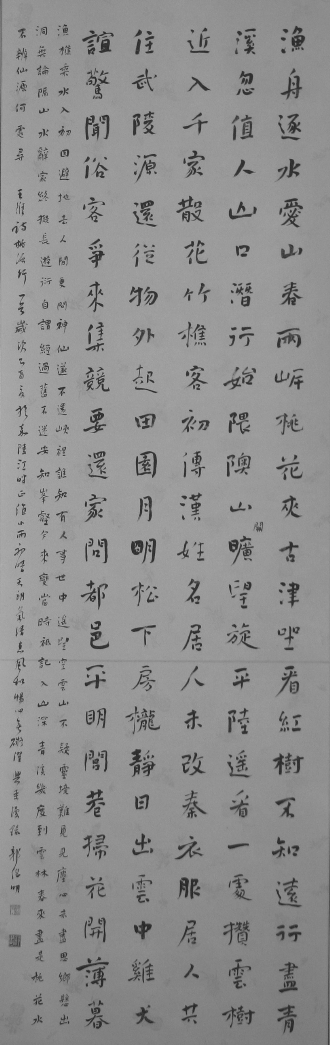 漁舟逐水愛山春兩岸桃花夾古津坐看紅樹不知遠行盡青
溪忽值人山口潛行始隈隩山開曠望旋平陸遙看一處攢雲樹
近入千家散花竹樵客初傳漢姓名居人未改秦衣服居人共
住武陵源還從物外起田園月明松下房櫳靜日出雲中雞犬
諠驚聞俗客爭來集競要還家問都邑平明閭巷掃花開薄暮
漁樵乘水入初因避地去人間更問神仙遂不還峽裡誰知有人事世中遙望空雲山不疑靈境難聞見塵心未盡思鄉縣出
洞無論隔山水辭家終擬長遊衍自謂經過舊不迷安知峯壑今來變當時祇記入山深青溪幾度到雲林春來遍是桃花水
不辨仙源何處尋 王維詩桃源行